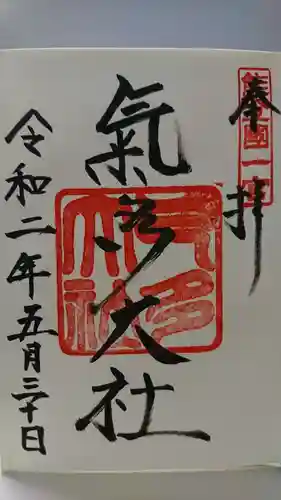 奉拝
能登國一宮
氣多大社
氣多大社
令和二年五月三十日